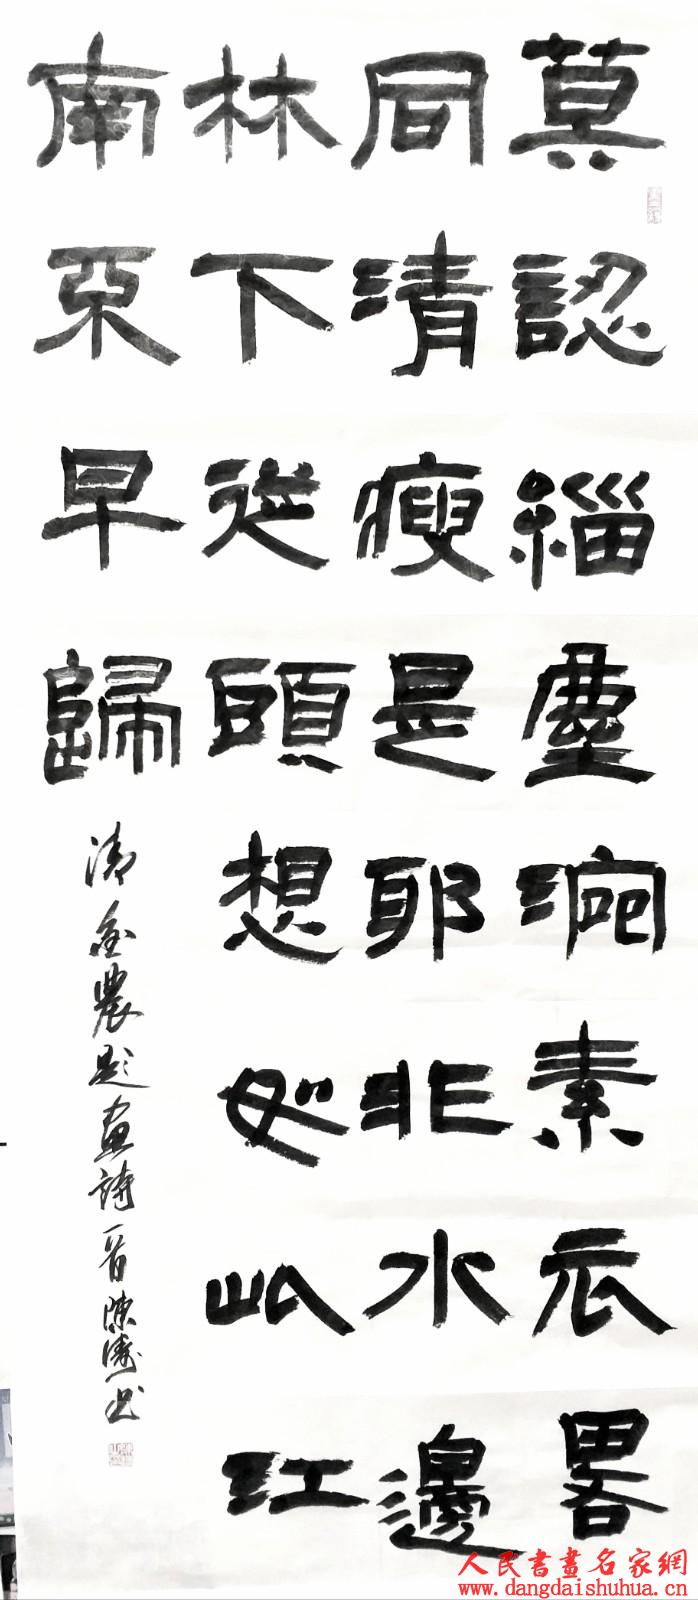 莫認緇塵涴素衣畧
同清瘦是耶非水邊
林下從頭想如此江
南早歸
清金農題畫詩一首陳濤书
人民書畫名家網
www.dangdaishuhua.cn